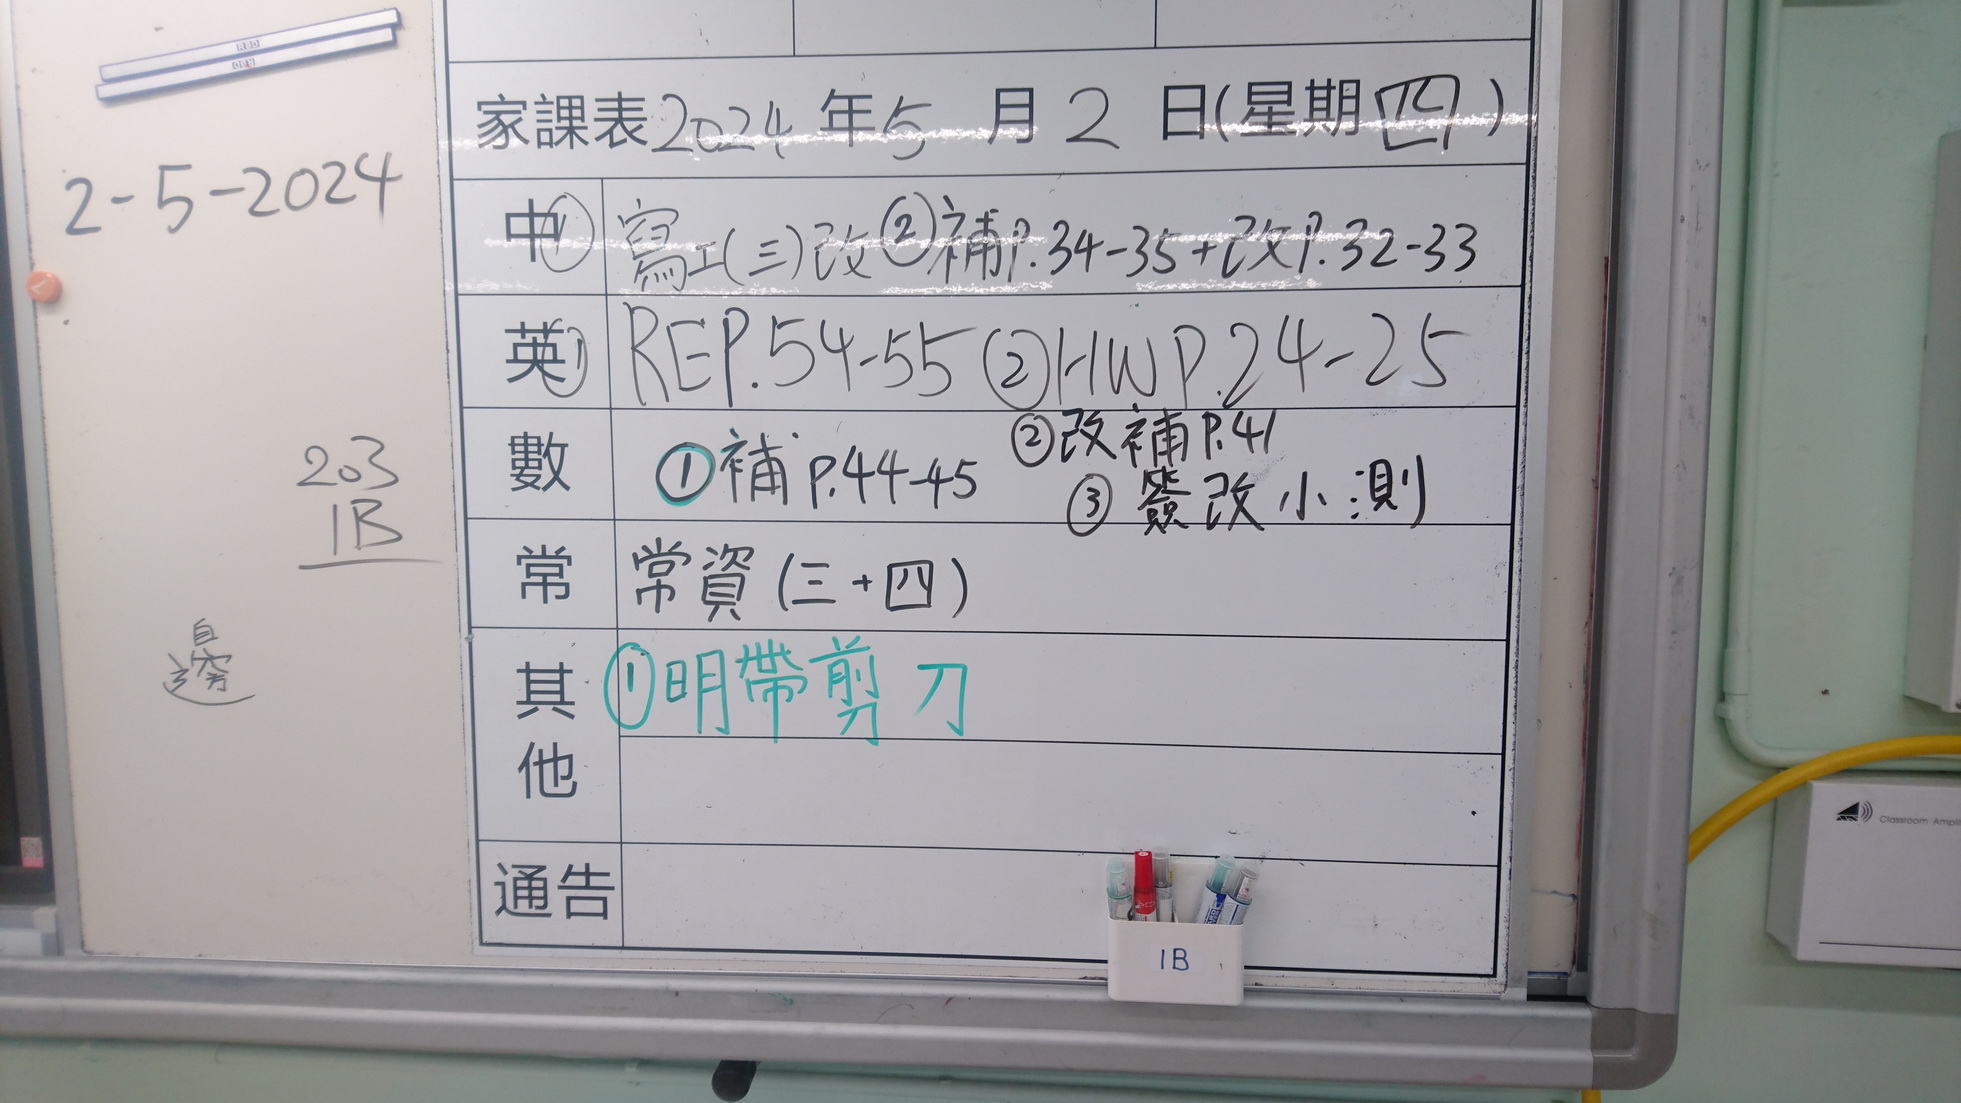 2-5-2024
203
1B
自
邊
家課表 2024 年 5 月 2 日(星期四)
中 ① 寫工(三)改 ② 補P.34-35+改P.32-33
英 ① REP.54-55 ② HWP.24-25
數 ① 補 P.44-45 ② 改補P.41
③ 簽改小測
常 常資(三+四)
其他 ① 明帶剪刀
通告
1B
Classroom Ampli